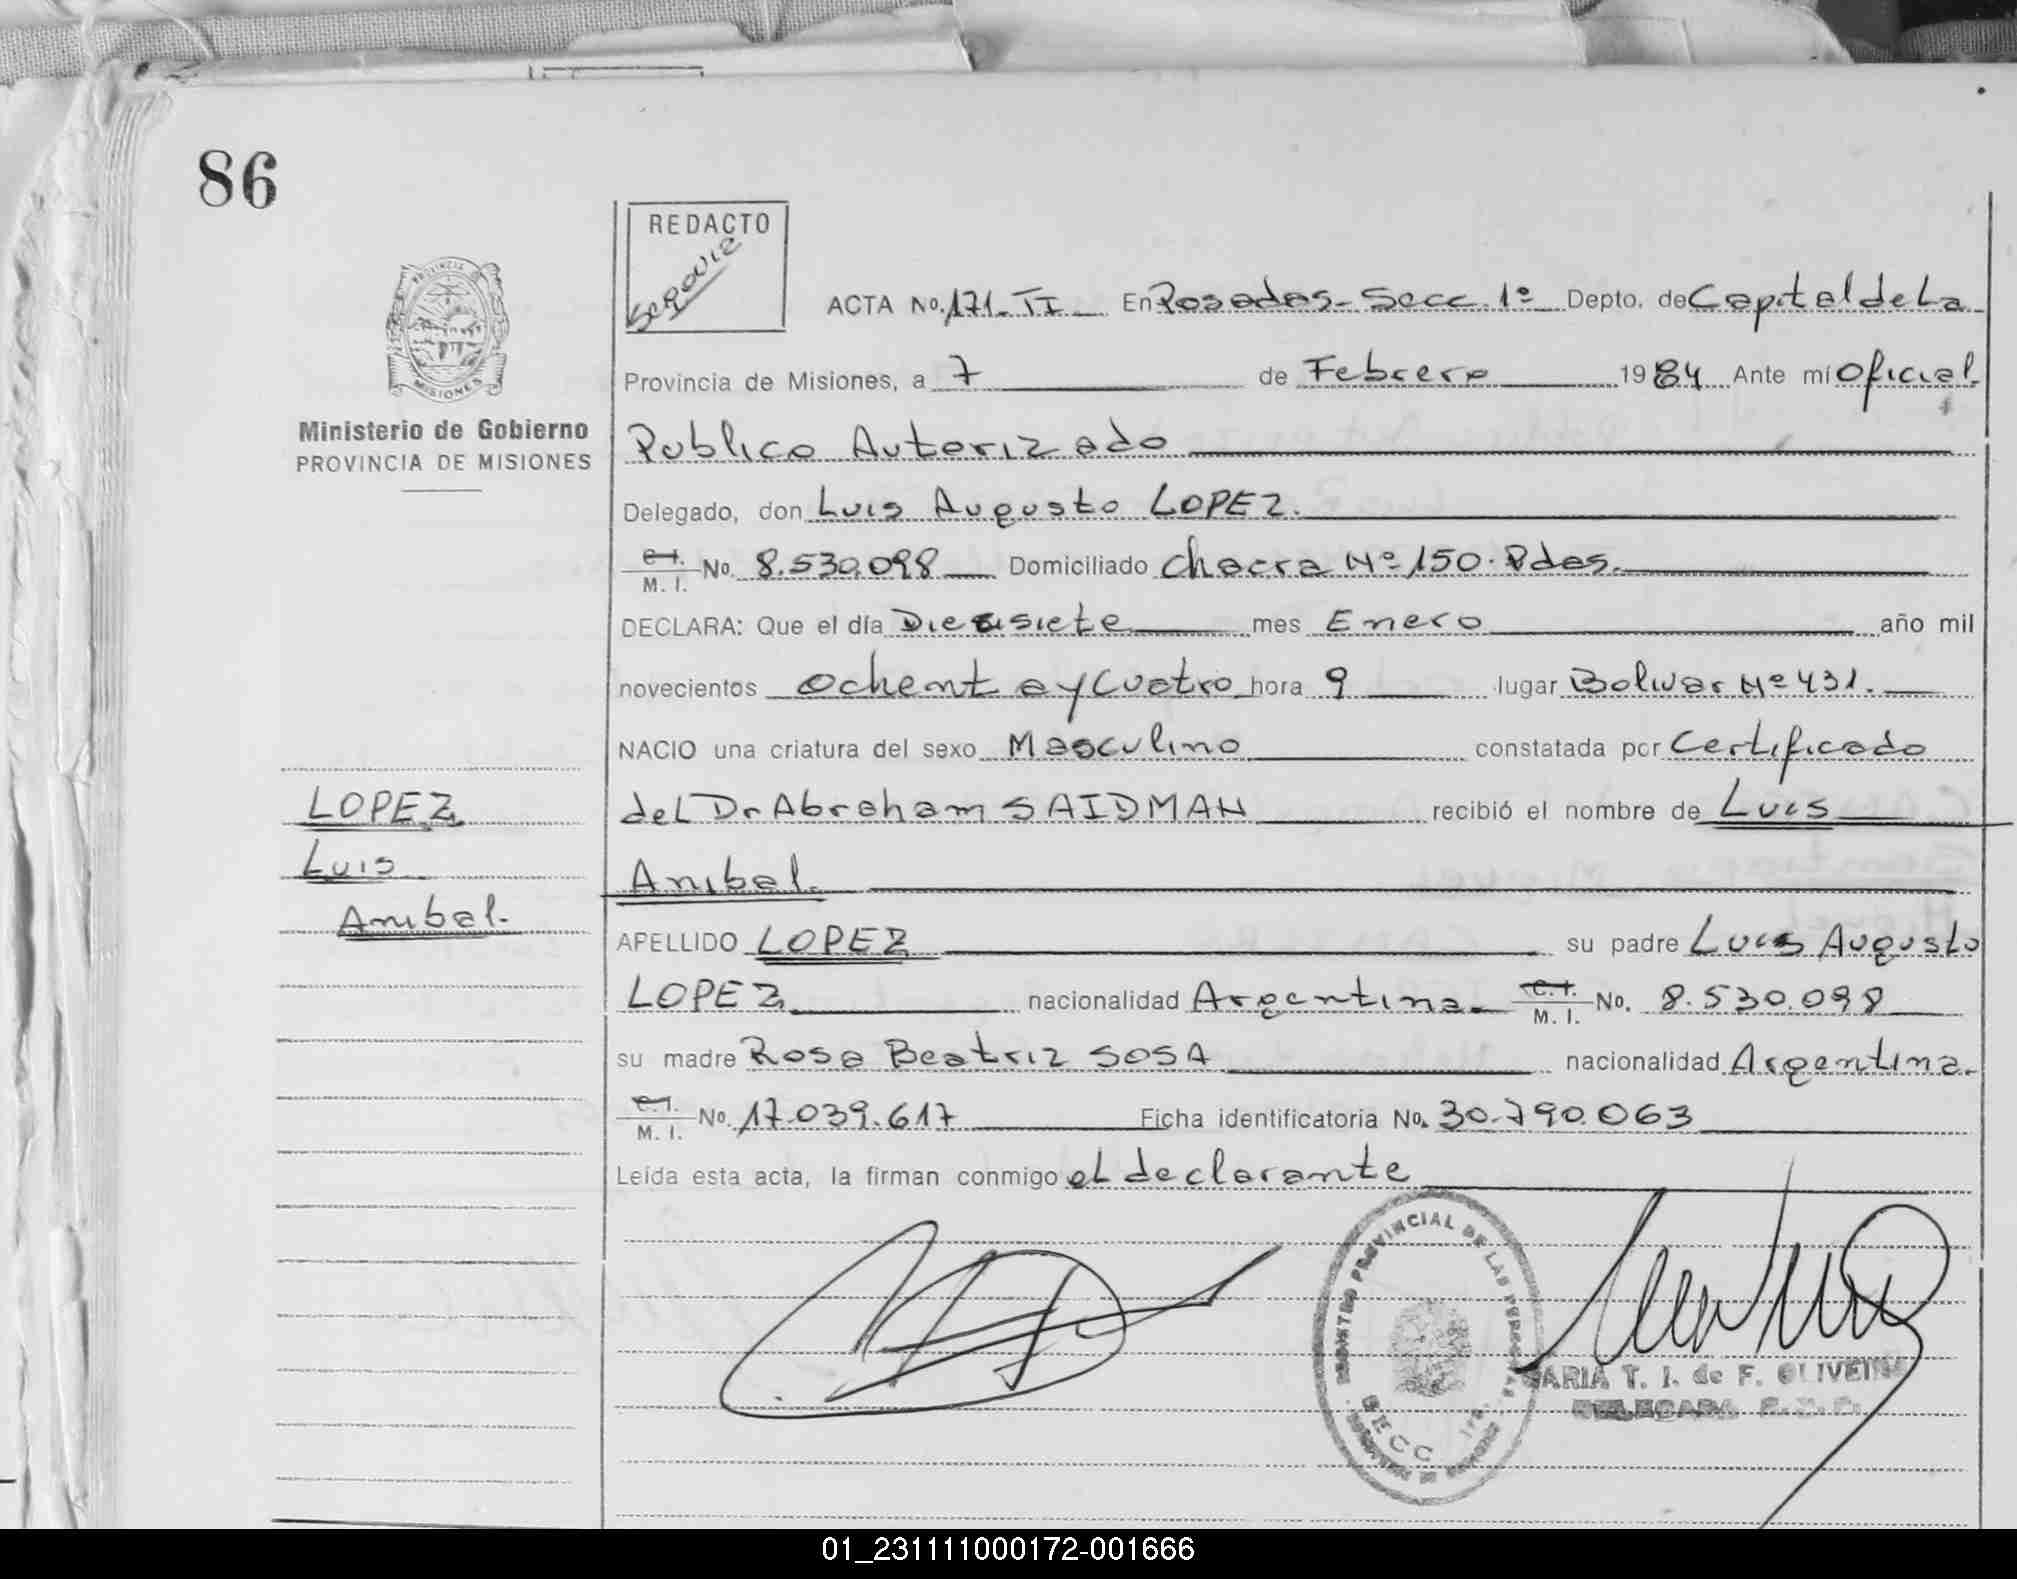 86
REDACTO
Segovia
PROVINCIA
MISIONES
Ministerio de Gobierno
PROVINCIA DE MISIONES
ACTA No. 171-TI En Posadas-Secc. 1º Depto. de Capital de La
Provincia de Misiones, a 7 de Febrero 1984 Ante mí Oficial
Publico Autorizado
Delegado, don Luis Augusto LOPEZ.
C.I. M. I. No. 8.530.098 Domiciliado Chacra Nº 150. Pdas.
DECLARA: Que el día Diecisiete mes Enero año mil
novecientos Ochenta y Cuatro hora 9 lugar Bolivar Nº 431.
NACIO una criatura del sexo Masculino constatada por Certificado
del Dr Abraham SAIDMAN recibió el nombre de Luis
Anibal.
APELLIDO LOPEZ su padre Luis Augusto
LOPEZ nacionalidad Argentina. C.I. M. I. No. 8.530.098
su madre Rosa Beatriz SOSA nacionalidad Argentina.
C.I. M. I. No. 17.039.617 Ficha identificatoria No. 30.790.063
Leída esta acta, la firman conmigo el declarante
LOPEZ
Luis
Anibal.
REGISTRO PROVINCIAL DE LAS PERSONAS
SECC 1ra.
MARIA T. I. de F. OLIVEIRA
DELEGADA R.P.P.
01_231111000172-001666